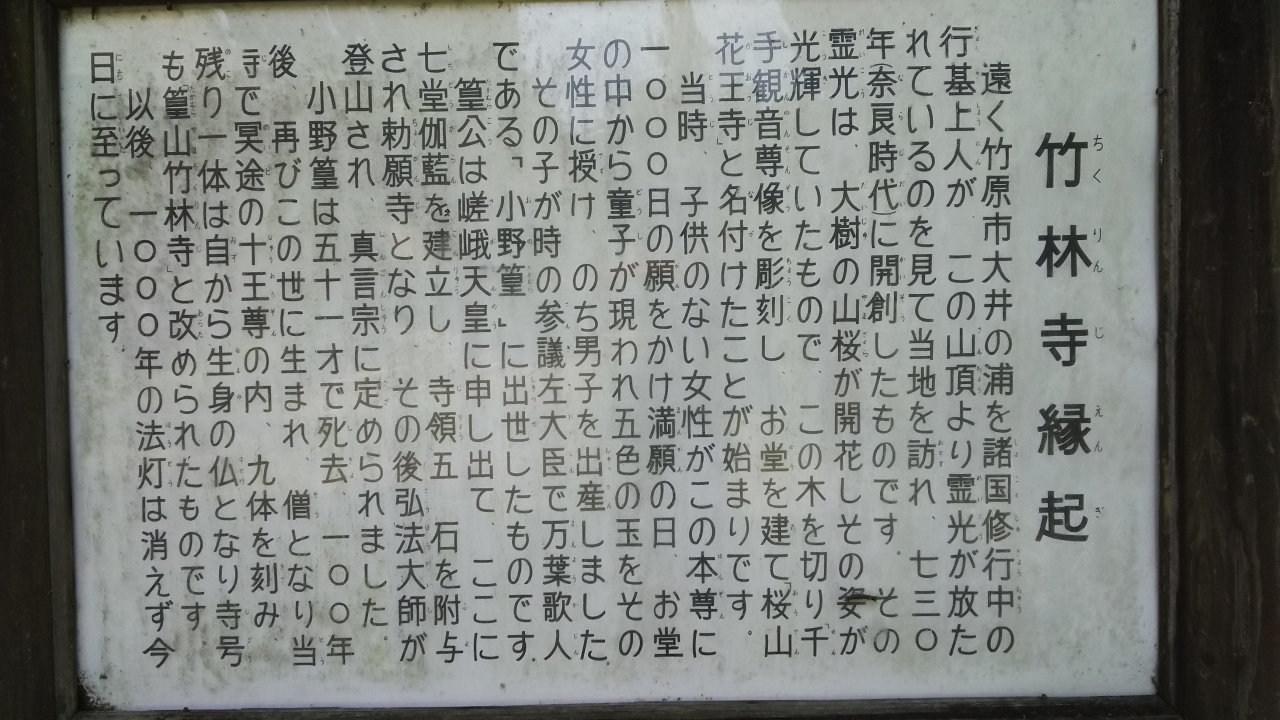 竹林寺縁起
遠く竹原市大井の浦を諸国修行中の
行基上人が、この山頂より霊光が放た
れているのを見て当地を訪れ、七三〇
年(奈良時代)に開創したものです。その
霊光は、大樹の山桜が開花しその姿が
光輝していたもので、この木を切り千
手観音尊像を彫刻し、お堂を建て「桜山
花王寺」と名付けたことが始まりです。
当時、子供のない女性がこの本尊に
一〇〇〇日の願をかけ満願の日、お堂
の中から童子が現われ五色の玉をその
女性に授け、のち男子を出産しました。
その子が時の参議左大臣で万葉歌人
である「小野篁」に出世したものです。
篁公は嵯峨天皇に申し出て、ここに
七堂伽藍を建立し、寺領五 石を附与
され勅願寺となり、その後弘法大師が
登山され、真言宗に定められました。
小野篁は五十一才で死去、一〇〇年
後、再びこの世に生まれ、僧となり当
寺で冥途の十王尊の内、九体を刻み、
残り一体は自から生身の仏となり寺号
も「篁山竹林寺」と改められたものです。
以後、一〇〇〇年の法灯は消えず今
日に至っています。